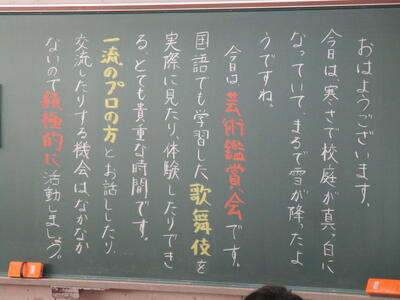 おはようございます。
今日は、寒さで校庭が真っ白に
なっていて、まるで雪が降ったよ
うですね。
今日は芸術鑑賞会です。
国語でも学習した歌舞伎を
実際に見たり、体験したりでき
る、とても貴重な時間です。
一流のプロの方とお話ししたり、
交流したりする機会はなかなか
ないので積極的に活動しましょう。